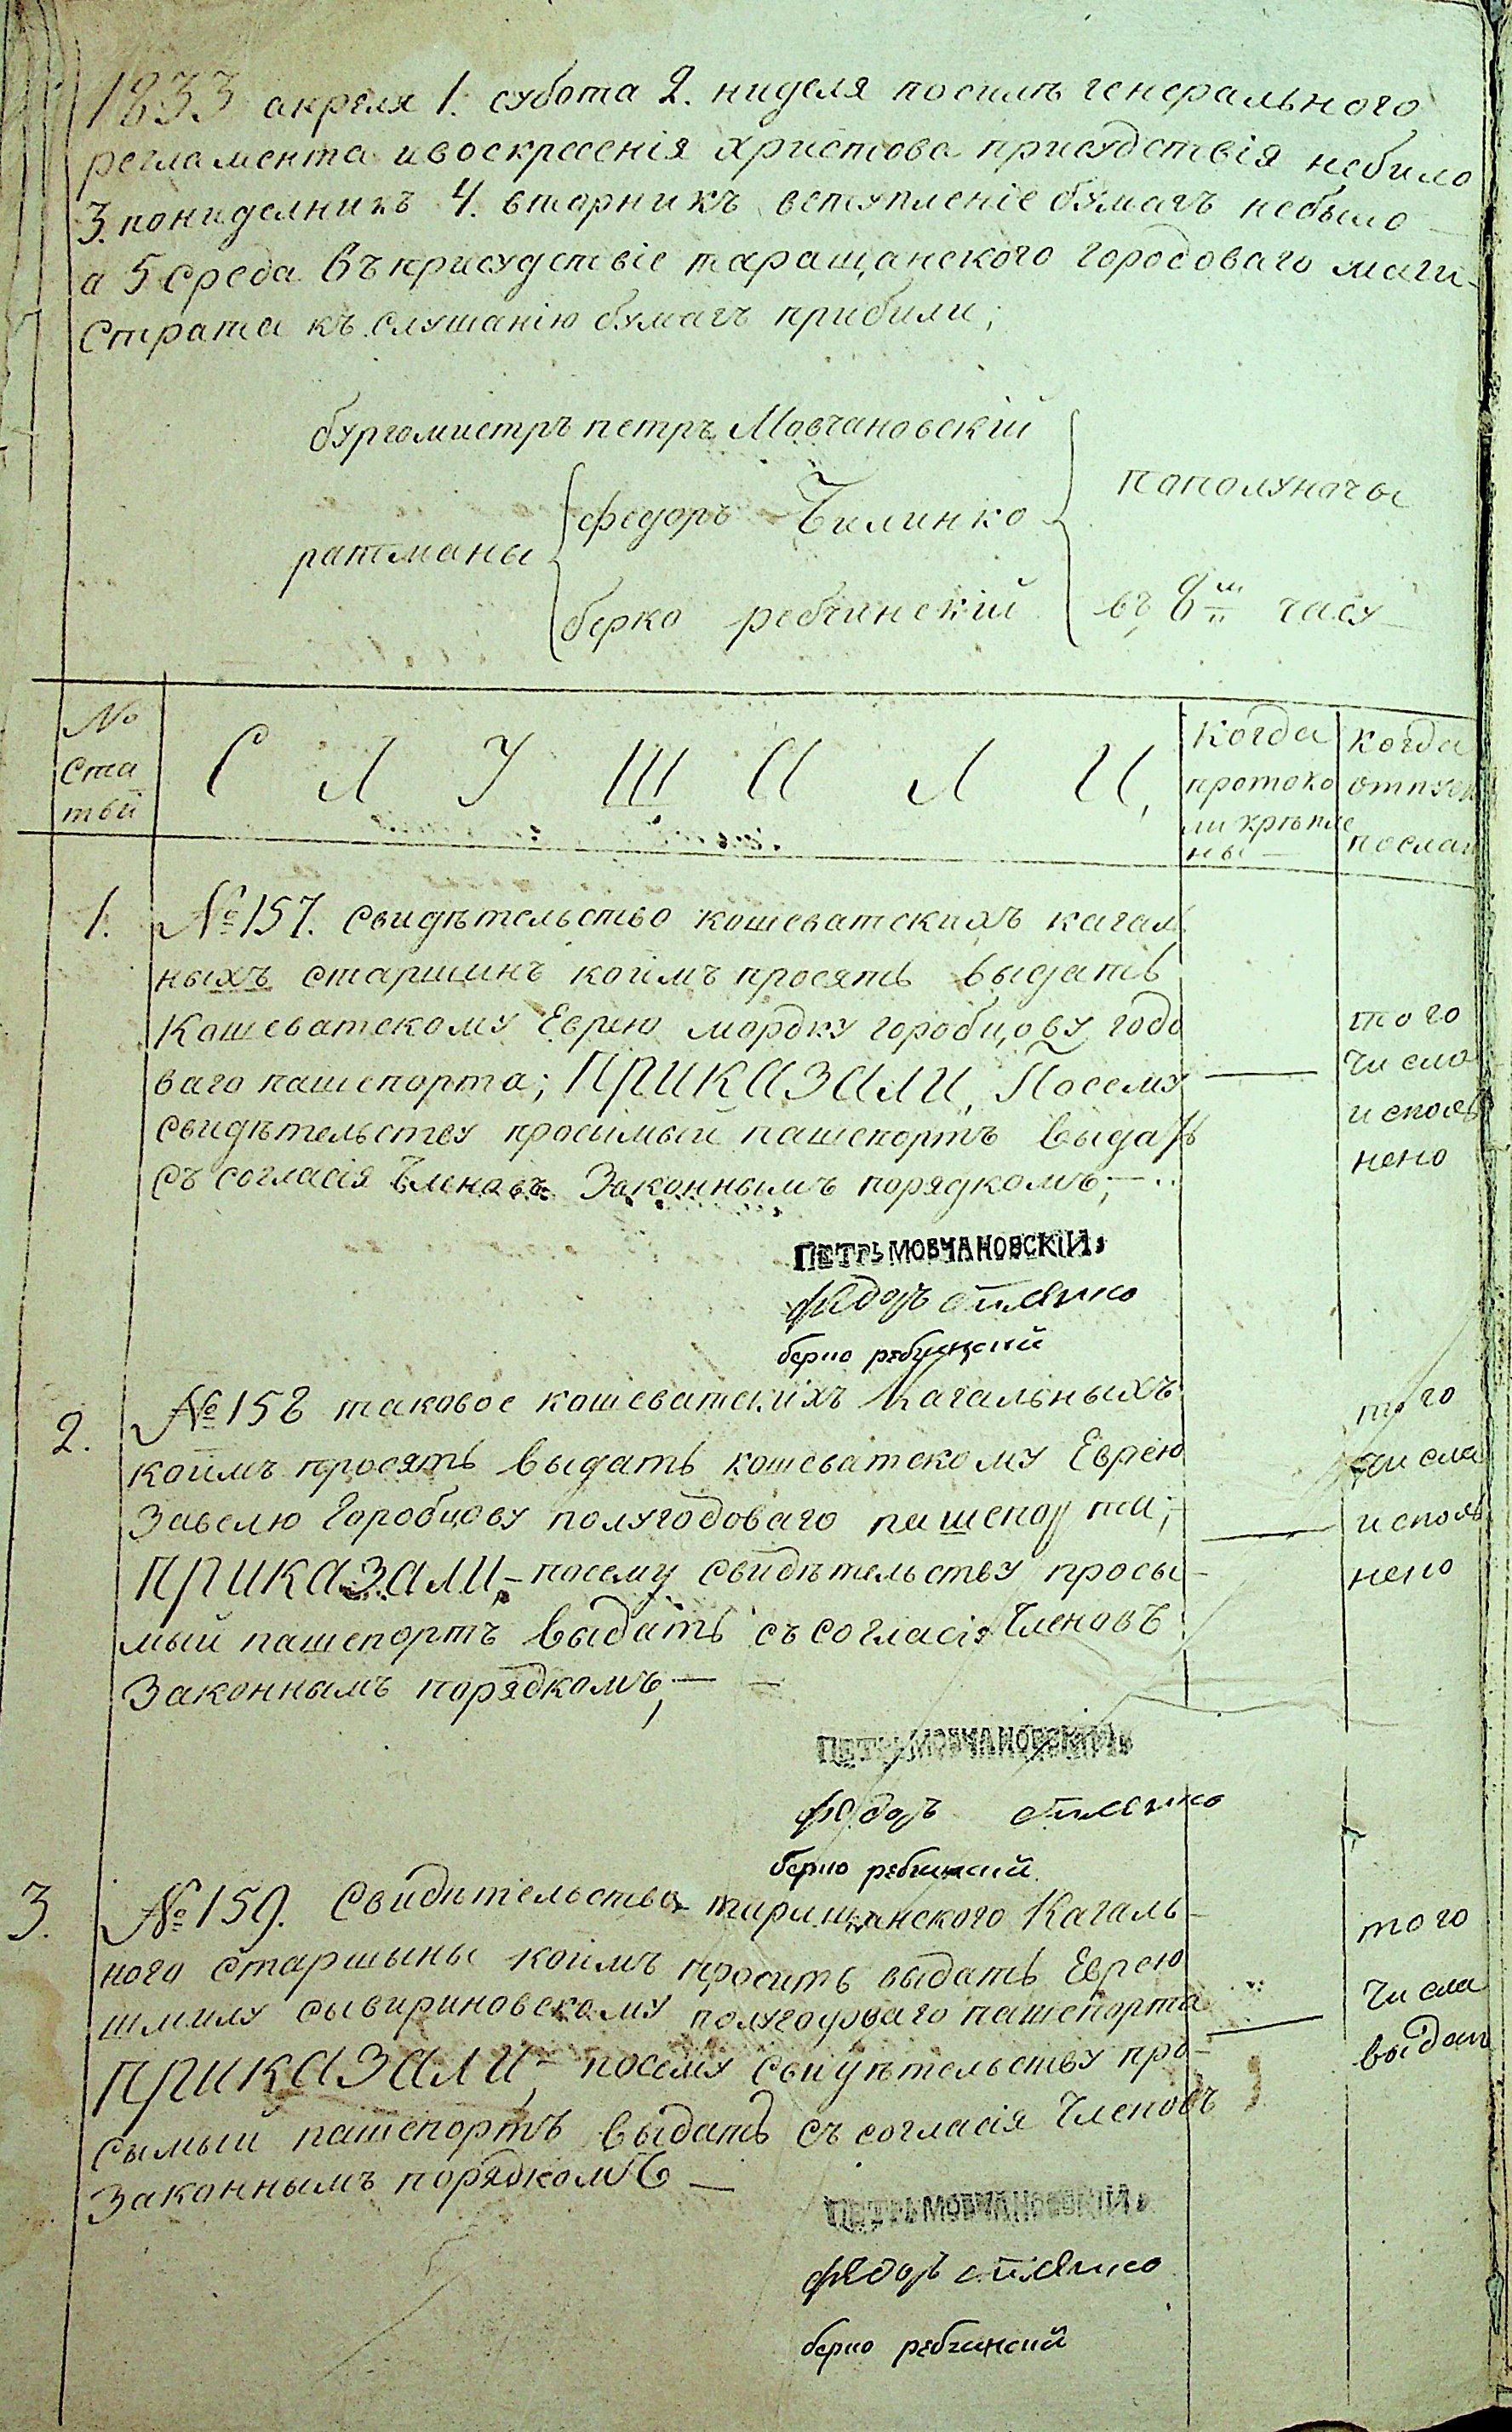 1833 апреля 1. субота 2. ниделя посилѣ генерального
регламента ивоскресенія христова присудствія небило
3. понидел​никъ 4. вторникъ вступленіе бумагъ небыло
а 5 Среда Въ присудствіе таращанского городоваго маги-
Страта къ слушанію бумагъ прибили;
бургомистръ петръ Мовчановскій
пополуночы
федоръ Билинко
ратманы
берко ребчинскій
въ 8м часу
№ Ста тьи
СЛУШАЛИ,
когда протоко ли крѣпле ны
когда отпуск послан
1. №157. Свидѣтельство кошеватскихъ кагал
ныхъ старшинъ коимъ просятъ выдать
Кошеватскому Еврею мордку горобцову годо
ваго пашепорта; ПРИКАЗАЛИ, Посему
свидѣтельству просымый пашепортъ выдать
Съ согласія Членовъ Законнымъ порядкомъ;
того
Число
исполь
нено
ПЕТРЪ МОВЧАНОВСКІЙ
федоръ билинко
берко ребчинский
2. №158 таковое кошеватскихъ Кагальныхъ
коимъ просятъ выдать кошеватскому Еврею
Завелю Горобцову полугодоваго пашепорта;
ПРИКАЗАЛИ, - посему свидѣтельству просы-
мый пашепортъ выдать съ согласія Членовъ
Законнымъ порядкомъ;
того
Числа
исполь
нено
ПЕТРЪ МОВЧАНОВСКІЙ
федоръ билинко
берко ребчинский
3. №159. Свидѣтельство таращанского Кагаль-
ного старшыны коимъ просить выдать Еврею
шмилу сывириновскому полугодоваго пашепорта
ПРИКАЗАЛИ, - посему свидѣтельству про-
сымый пашепортъ выдать съ согласія Членовъ
Законнымъ порядкомъ
того
Числа
выдан
ПЕТРЪ МОВЧАНОВСКІЙ
федоръ билинко
берко ребчинский